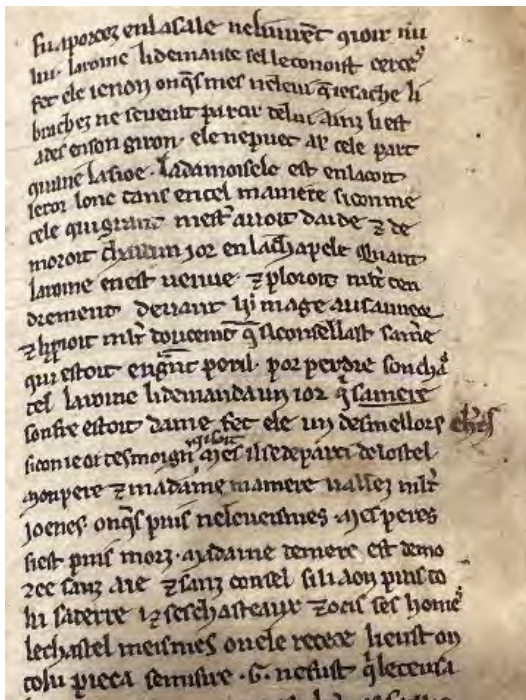 fu aporcez en la sale ne li uirēt q̄ioir nu
lui. la roine li demande sel le conoist certes
fet ele ie non onq̄s mes nel ui q̄ ie sache li
brachez ne se veut partir de lui. ainz li est
ades en son giron. ele ne puet ar cele part
la siue. la damoisele est en la cort
le roi lonc tans en tel maniere si comme
cele qui grant mest' auoit daide ⁊ de
moroit chascun ior en la chapele quant
la roine en est uenue. ⁊ ploroit mlt̄ ten
drement deuant li ymage au sauueor
⁊ li prioit mlt̄ doucemt̄ q̄ consellast sa mere
qui estoit en gn̄t peril. por perdre son cha
tel la roine li demanda un ior q̄ sa mere
estoit dame fet ele un des mellors ch'rs
si con ie oi tesmoign' mes il se departi de lostel
mon pere ⁊ ma dame ma mere uallez mlt̄
joenes. onq̄s puis nel ueismes. mes peres
si est puis morz. ma dame de mere est demo
ree sanz aie ⁊ sanz consel si li a on puis to
lu sa terre ⁊ ses chasteaux ⁊ ocis ses home'
le chastel meismes ou ele recete li eust on
tolu pieca se mesire .G. ne fust q̄